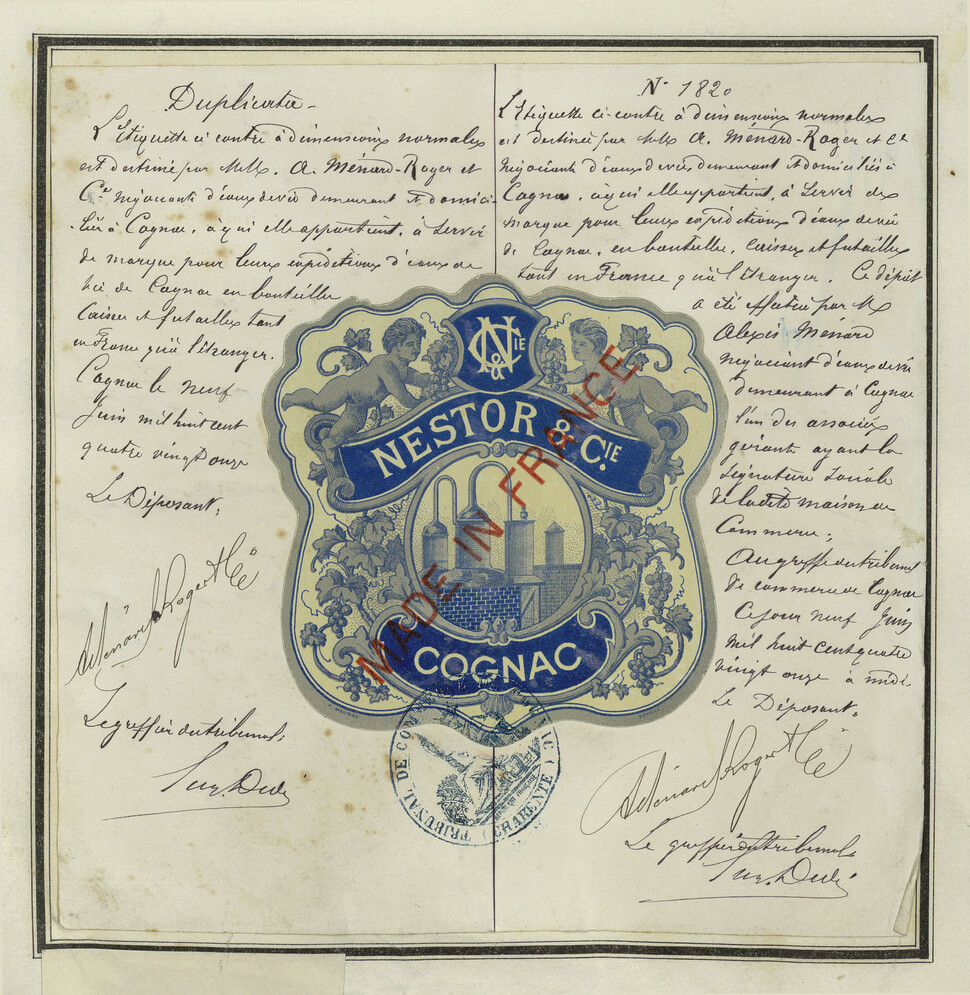 Duplicata
L'Etiquette ci contre à dimensions normales
est destinée par M.M. A. Ménard-Roger et
Cie négociants d'eaux de vie demeurant et domici-
-liés à Cognac, à qui elle appartient, à servir
de marque pour leurs expéditions d'eaux de
vie de Cognac en bouteilles
Caisses et futailles tant
en France qu'à l'étranger.
Cognac le neuf
Juin mil huit cent
quatre vingt onze
Le Déposant,
A Ménard Roger & Cie
Le greffier du tribunal,
N° 1820
L'Etiquette ci-contre à dimensions normales
est destinée par M.M. A. Ménard-Roger et Cie
négociants d'eaux de vie demeurant et domiciliés à
Cognac, à qui elle appartient, à servir de
marque pour leurs expéditions d'eaux de vie
de Cognac, en bouteilles, caisses et futailles
tant en France qu'à l'étranger. Ce dépôt
a été effectué par M
Alexis Ménard
négociant d'eaux de vie
demeurant à Cognac
l'un des associés
gérants ayant la
signature sociale
de ladite maison de
Commerce,
Au greffe du tribunal
de commerce de Cognac
Ce jour neuf Juin
mil huit cent quatre
vingt onze à midi.
Le Déposant,
A Ménard Roger & Cie
Le greffier du tribunal,
NC & IE
NESTOR & CIE
COGNAC
MADE IN FRANCE
TRIBUNAL DE COMMERCE COGNAC (CHARENTE)